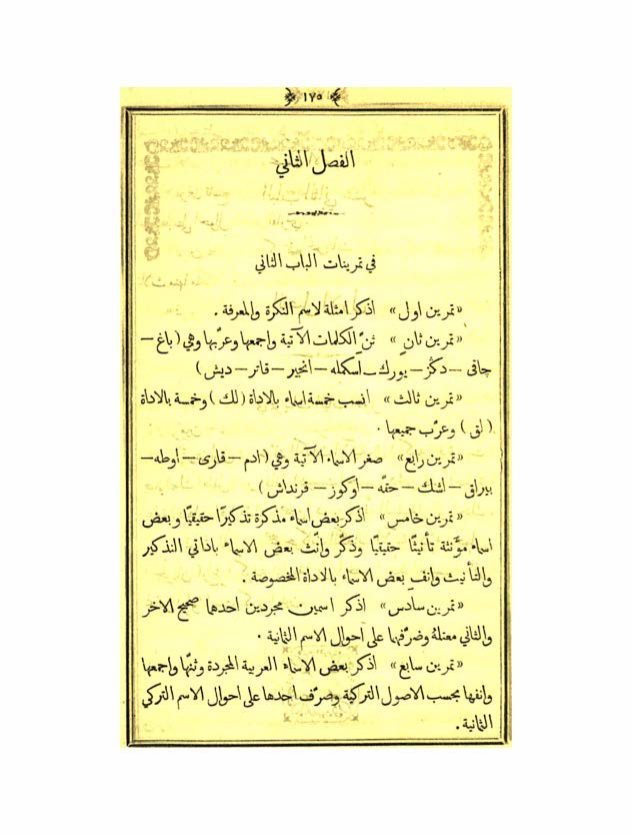 ١٧٥
الفصل الثاني
في تمرينات الباب الثاني
«تمرين اول» اذكر امثلة لاسم النكرة والمعرفة .
«تمرين ثان» ثنّ الكلمات الآتية واجمعها وعرّبها وهي (باغ —
جاقى — دكز — يورك — اسكمله — انجير — قاتر — ديش)
«تمرين ثالث» انسب خمسة اسماء بالاداة (لك) وخمسة بالاداة
(لق) وعرّب جميعها .
«تمرين رابع» صغر الاسماء الآتية وهي (ادم — قارى — اوطه —
بيراق — اشك — حقّه — اوكوز — قرنداش)
«تمرين خامس» اذكر بعض اسماء مذكرة تذكيرًا حقيقيًا وبعض
اسماء مؤنثة تأنيثًا حقيقيًا وذكّر وانّث بعض الاسماء باداتي التذكير
والتأنيث وانفِ بعض الاسماء بالاداة المخصوصة .
«تمرين سادس» اذكر اسمين مجردين احدها صحيح الاخر
والثاني معتلهُ وصرّفهما على احوال الاسم الثمانية .
«تمرين سابع» اذكر بعض الاسماء العربية المجردة وثنّها واجمعها
وانفها بحسب الاصول التركية وصرّف احدها على احوال الاسم التركي
الثمانية .